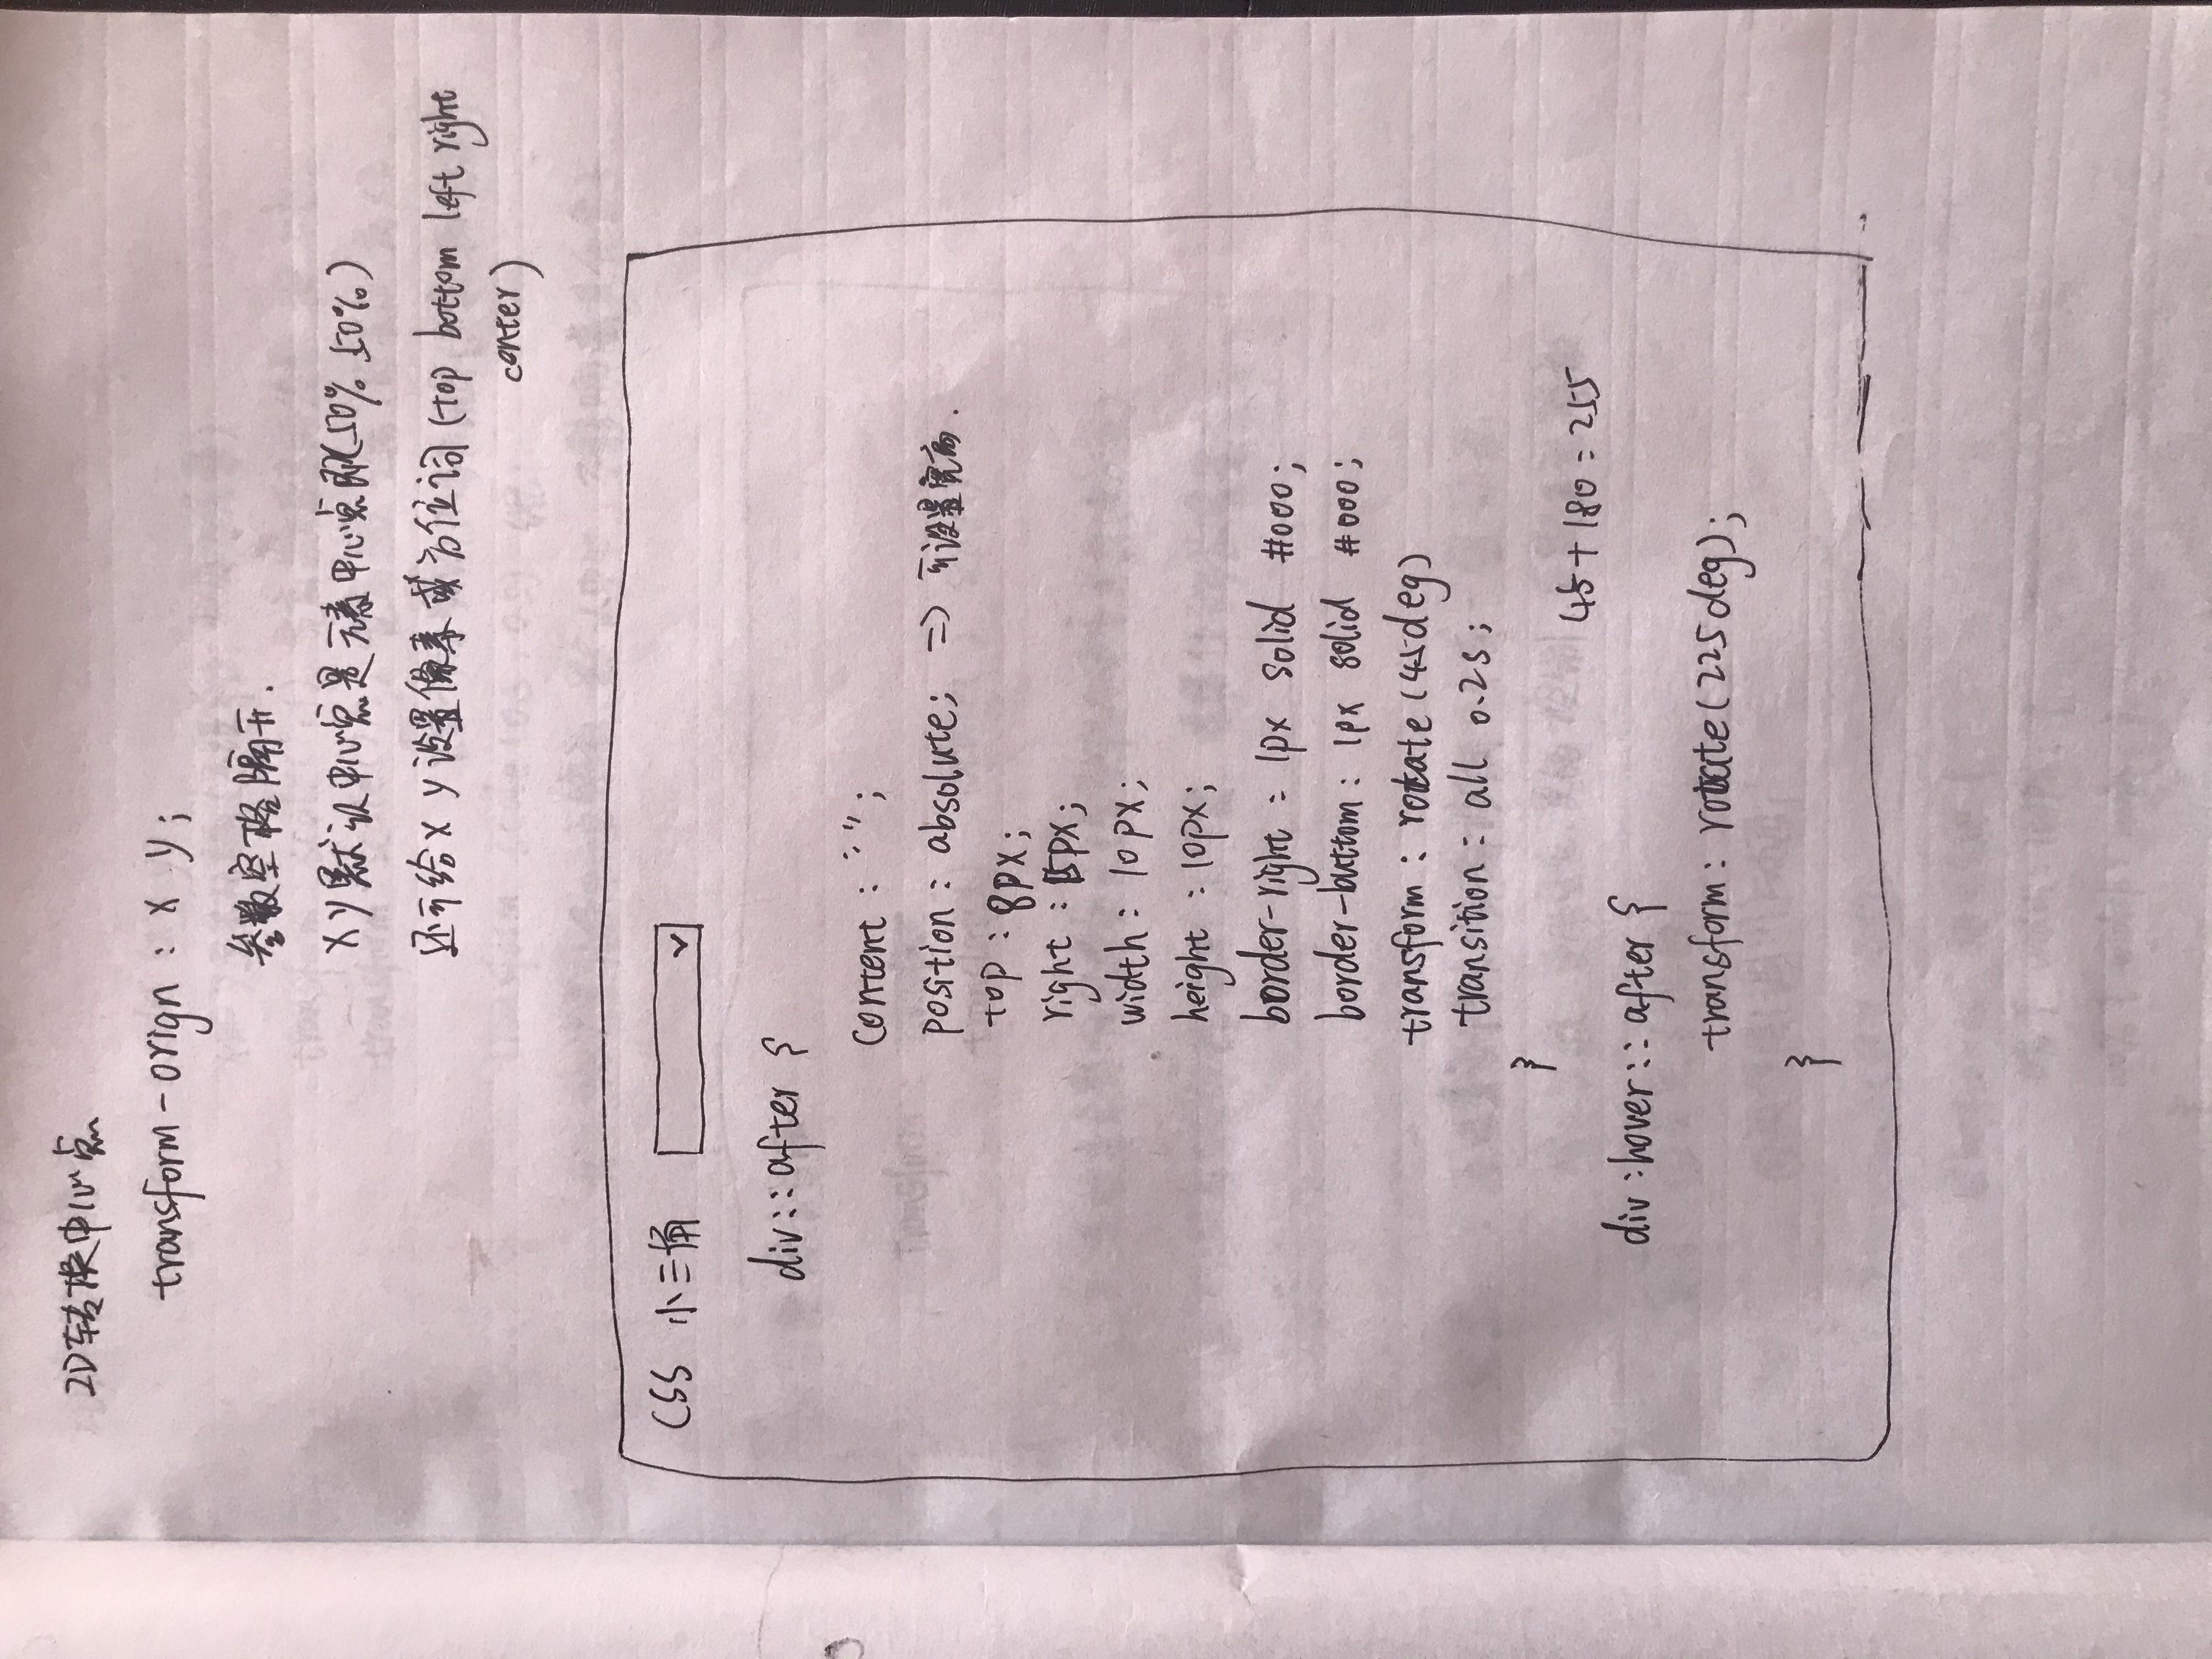 2D转换中心点
transform-orign : x y;
参数空格隔开.
x y 默认中心点是元素中心点即(50% 50%)
还可给 x y 设置像素 或方位词 (top bottom left right
center)
CSS 小三角
div::after {
content : "";
position : absolute; => 可设置宽高.
top : 8px;
right : 15px;
width : 10px;
height : 10px;
border-right : 1px solid #000;
border-buttom : 1px solid #000;
transform : rotate (45deg)
transition : all 0.2s;
}
45+180=255
div :hover:: after {
transform : rotate (225deg);
}